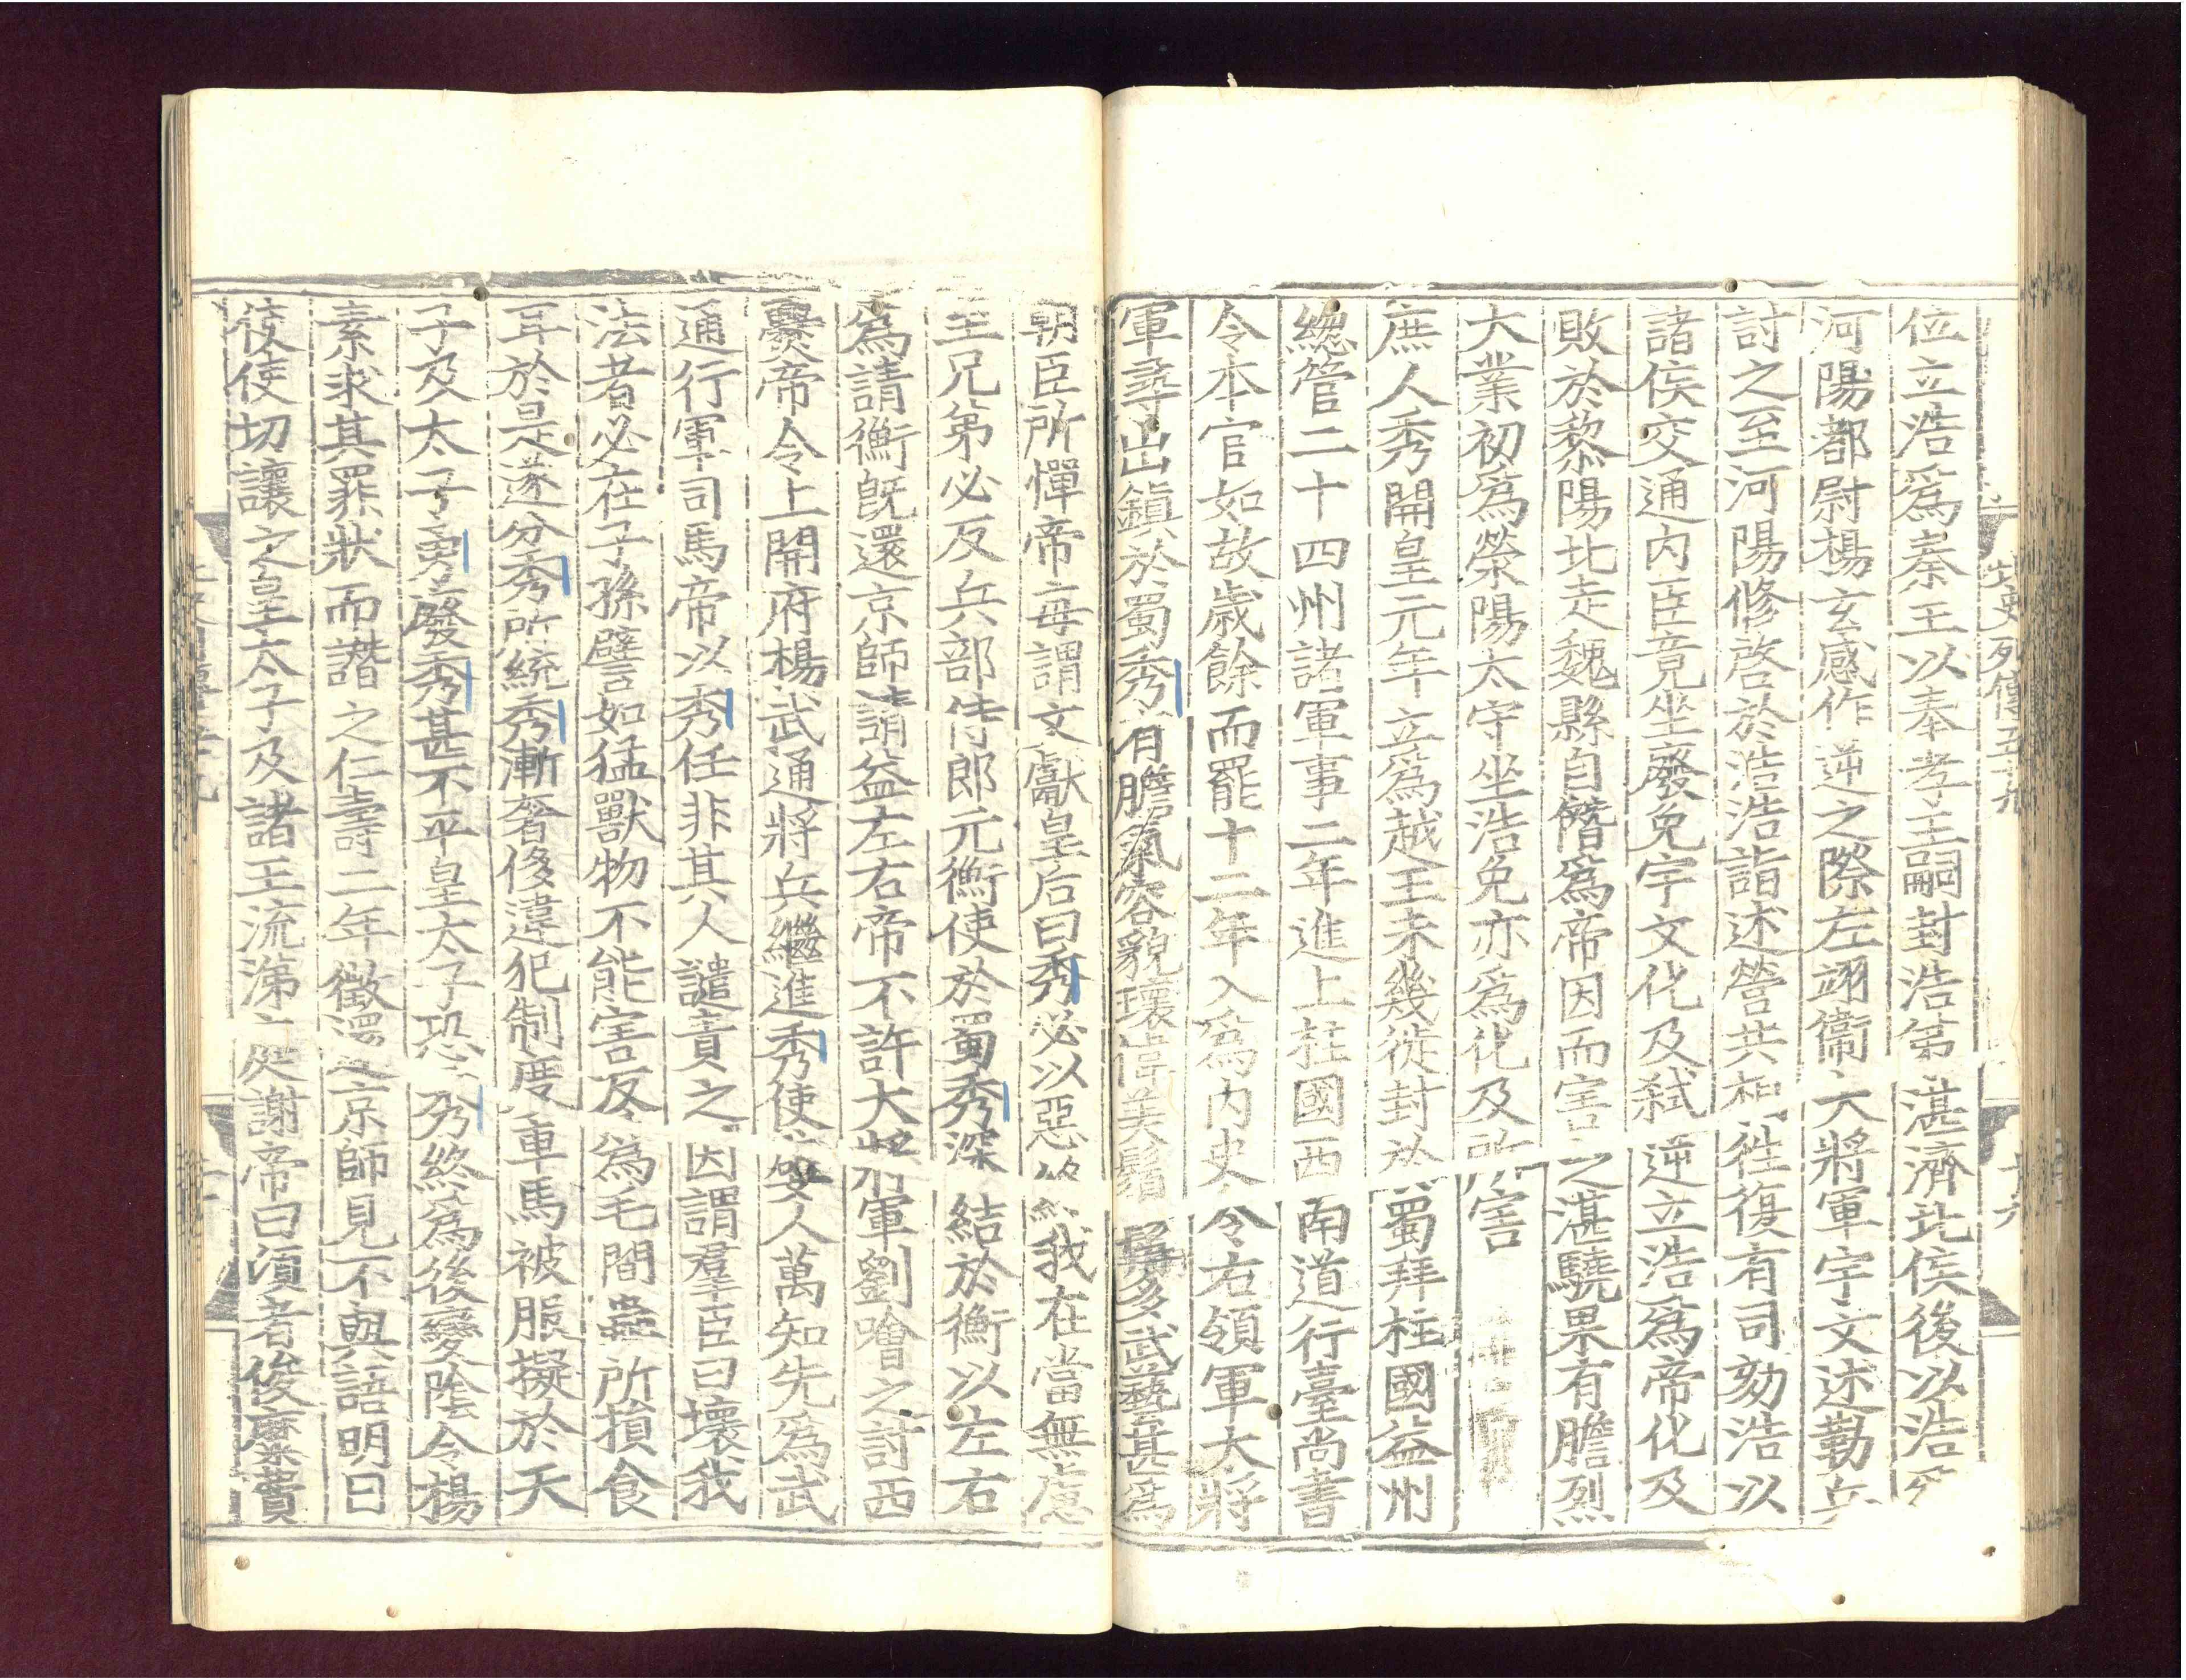 位立浩爲秦王以奉孝王嗣封浩弟湛濟北侯後以浩爲
河陽都尉楊玄感作逆之際左翊衛大將軍宇文述勒兵
討之至河陽修啓於浩浩詣述營共相往復有司劾浩以
諸侯交通内臣竟坐廢免宇文化及弑逆立浩爲帝化及
敗於黎陽北走魏縣自僭爲帝因而害之湛驍果有膽烈
大業初爲滎陽太守坐浩免亦爲化及所害
庶人秀開皇元年立爲越王未幾徙封於蜀拜柱國益州
緫管二十四州諸軍事二年進上柱國西南道行臺尚書
令本官如故歲餘而罷十二年入爲内史令右領軍大將
軍尋出鎮於蜀秀有膽氣容貌瓌偉美鬚髯多武藝甚爲
朝臣所憚帝每謂文獻皇后曰秀必以惡終我在當無慮
至兄弟必反兵部侍郎元衡使於蜀秀深結於衡以左右
爲請衡旣還京師請益左右帝不許大將軍劉噲之討西
爨帝令上開府楊武通將兵繼進秀使嬖人萬知先爲武
通行軍司馬帝以秀任非其人譴責之因謂羣臣曰壞我
法者必在子孫譬如猛獸物不能害反爲毛間蟲所損食
耳於是遂分秀所統秀漸奢侈違犯制度車馬被服擬於天
子及太子勇廢秀甚不平皇太子恐秀終爲後變陰令楊
素求其罪狀而譖之仁壽二年徵還京師見不與語明日
使使切讓之皇太子及諸王流涕庭謝帝曰頃者俊糜費
北史列傳五十九
十六